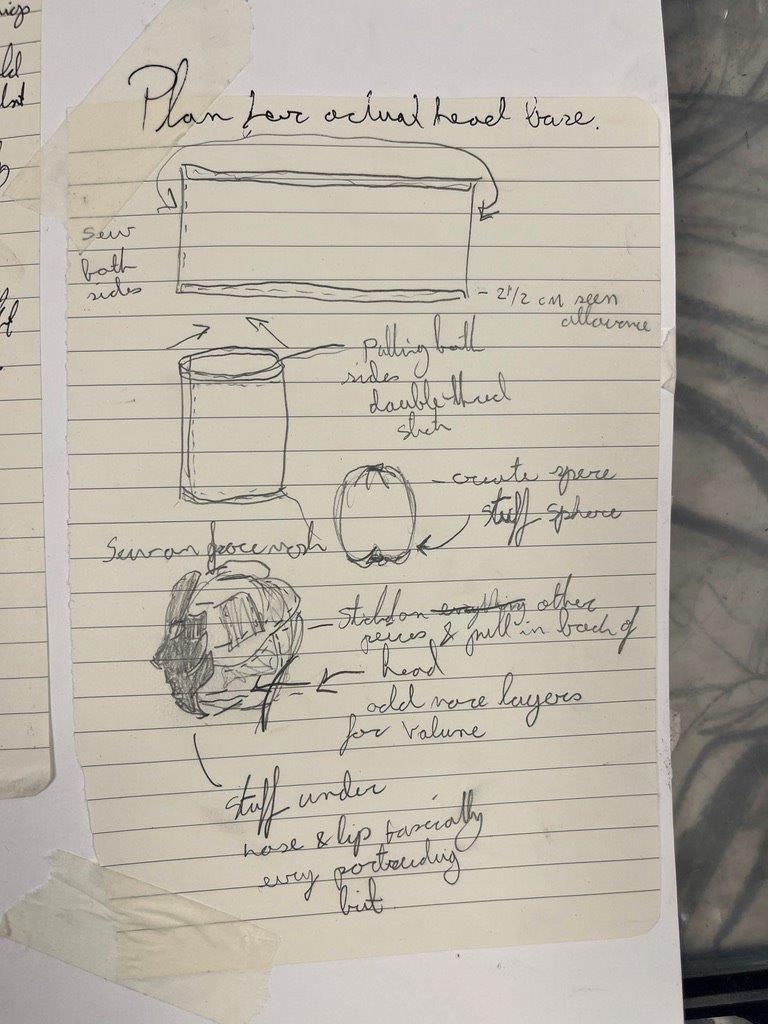 Plan for actual head base.
sew
both
sides
- 2 1/2 cm seen
allowance
Pulling both
sides
double thred
stich
- create spere
stuff sphere
Sew on face mesh
Stich on everything other
peices & pull in back of
head
add more layers
for Volume
stuff under
nose & lip basically
every portruding
bit.